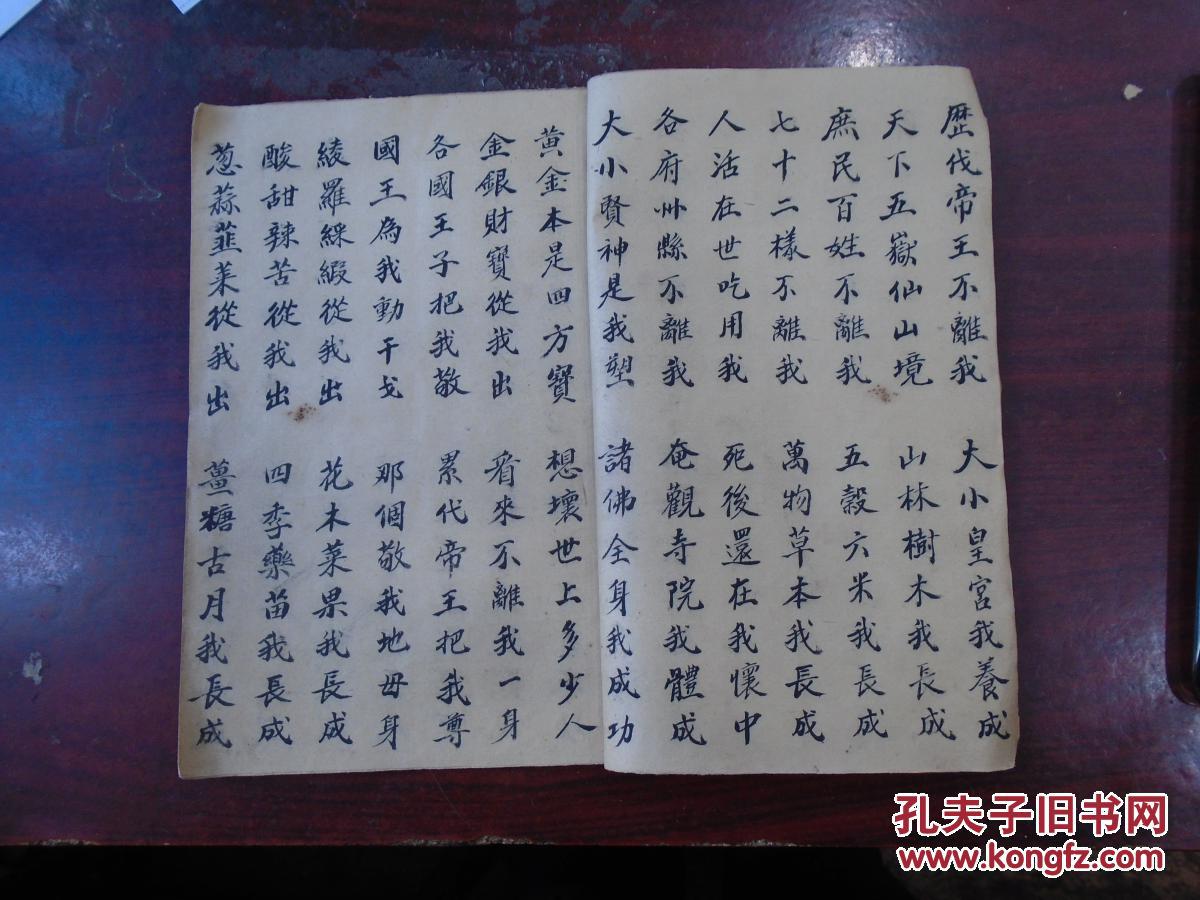 歷代帝王不離我 大小皇宮我養成
天下五嶽仙山境 山林樹木我長成
庶民百姓不離我 五穀六米我長成
七十二樣不離我 萬物草本我長成
人活在世吃用我 死後還在我懷中
各府州縣不離我 奄觀寺院我體成
大小賢神是我塑 諸佛全身我成功
黃金本是四方寶 想壞世上多少人
金銀財寶從我出 看來不離我一身
各國王子把我敬 累代帝王把我尊
國王為我動干戈 那個敬我地母身
綾羅綵緞從我出 花木菜果我長成
酸甜辣苦從我出 四季藥苗我長成
蔥蒜韮菜從我出 薑糖古月我長成
孔夫子旧书网
www.kongfz.com